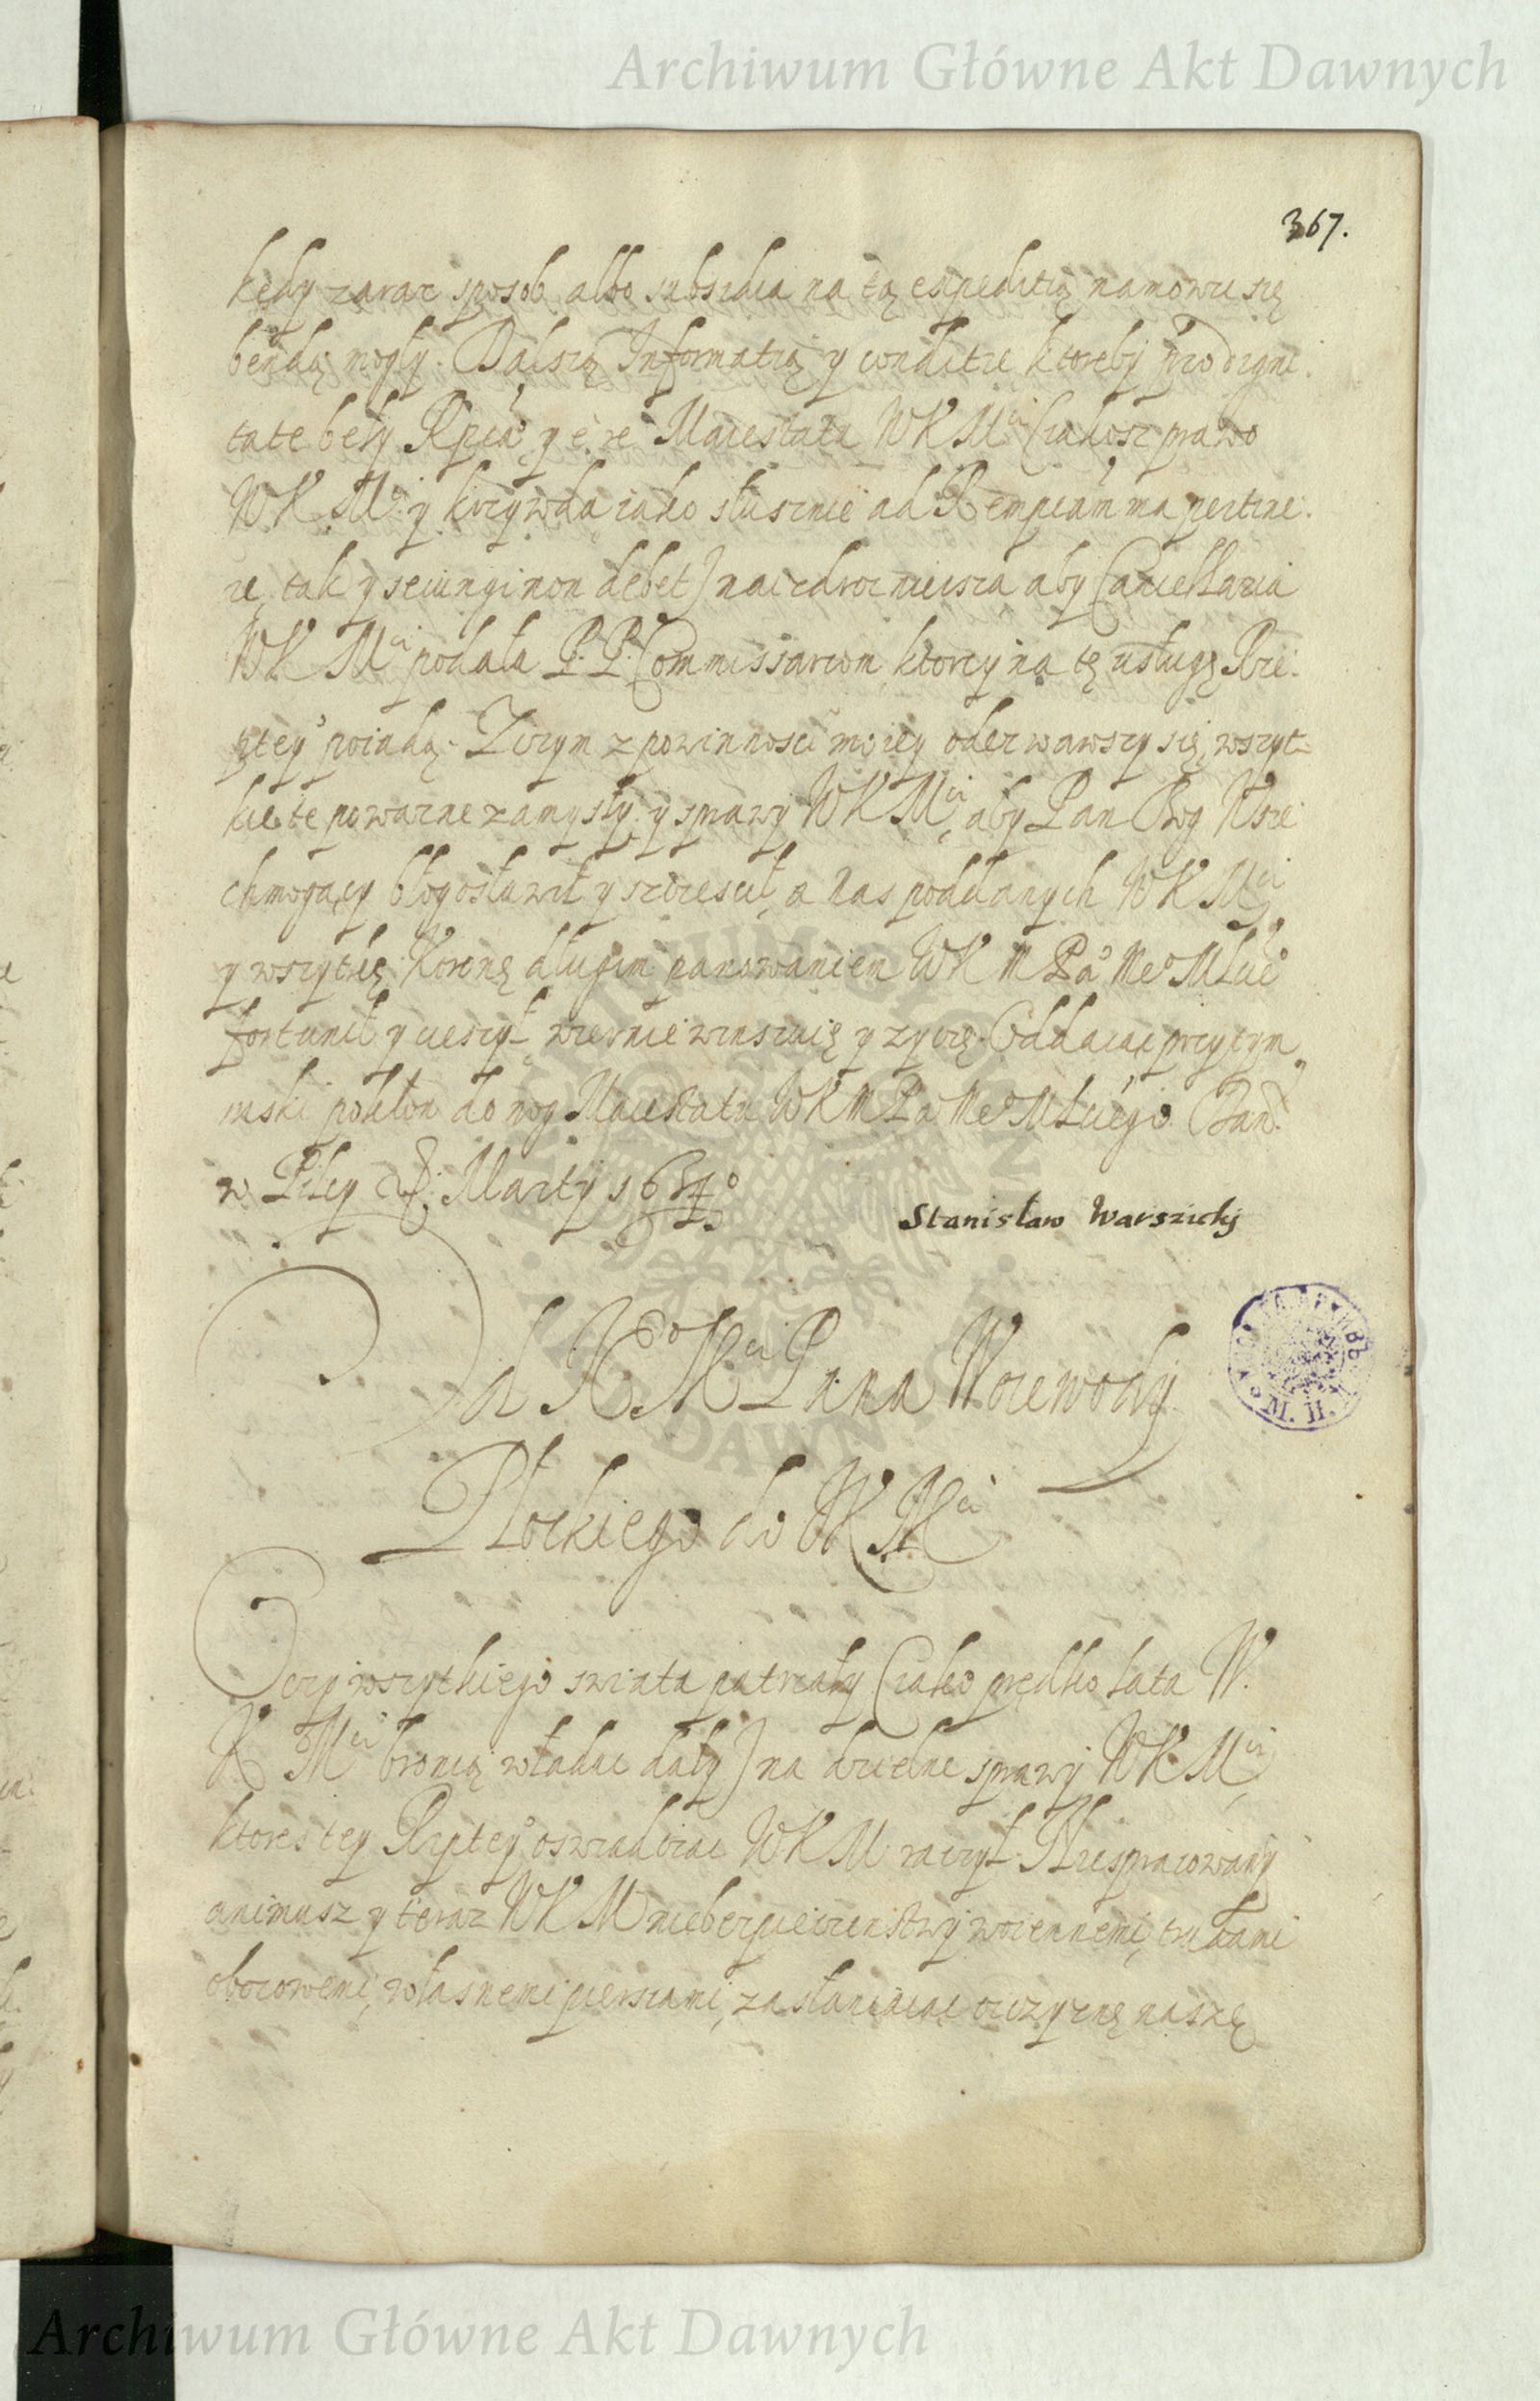 Archiwum Główne Akt Dawnych
367.
kędy zaraz sposob albo subsidia na tą expeditią namowić się
bendą mogły. Dalszą Informatią y conditie ktoreby pro digni-
tate beły Rptæ y è re Maiestatu WKMci (iakosz prawo
WKMci y krzywda iako słusznie ad Rempcam ma pertine-
re, tak y seiungi non debet) naizdrowieisza aby Cancellaria
WKMci podała P. P. Commissarzom ktorzy na tę usługę Rze-
ptey poiadą. Zczym z powinnosci moiey oderwawszy się, wszyt-
kie te powazne zamysły y sprawy WKMci, aby Pan Bog Wsze-
chmogący błogosławił y szczescił, a nas poddanych WKMci
y wszytkę Koronę długim panowaniem WKM Pa Meo Młłio
fortunił y cieszył, wiernie winszuię y zyczę. Oddaiąc przytym
niski pokłon do nog Maiestatu WKM Pa Meo Młłciego. Dan
w Pilcy 8. Martÿ 1634°
Stanisław Warszicky
Od JeoMci Pana Woiewody
Płockiego do WKMci
Oczy wszytkiego swiata patrzały (iako prędko lata W.
K Mci bronią władac dały) na dzielne sprawy WKMci,
ktores tey Rzptey oswiadczac WKM raczył. Niespracowany
animusz y teraz WKM niebezpieczenstwy woiennemi, trudami
obozowemi, własnemi piersiami, zasłaniaiąc oiczyznę naszę
M. II.
Archiwum Główne Akt Dawnych